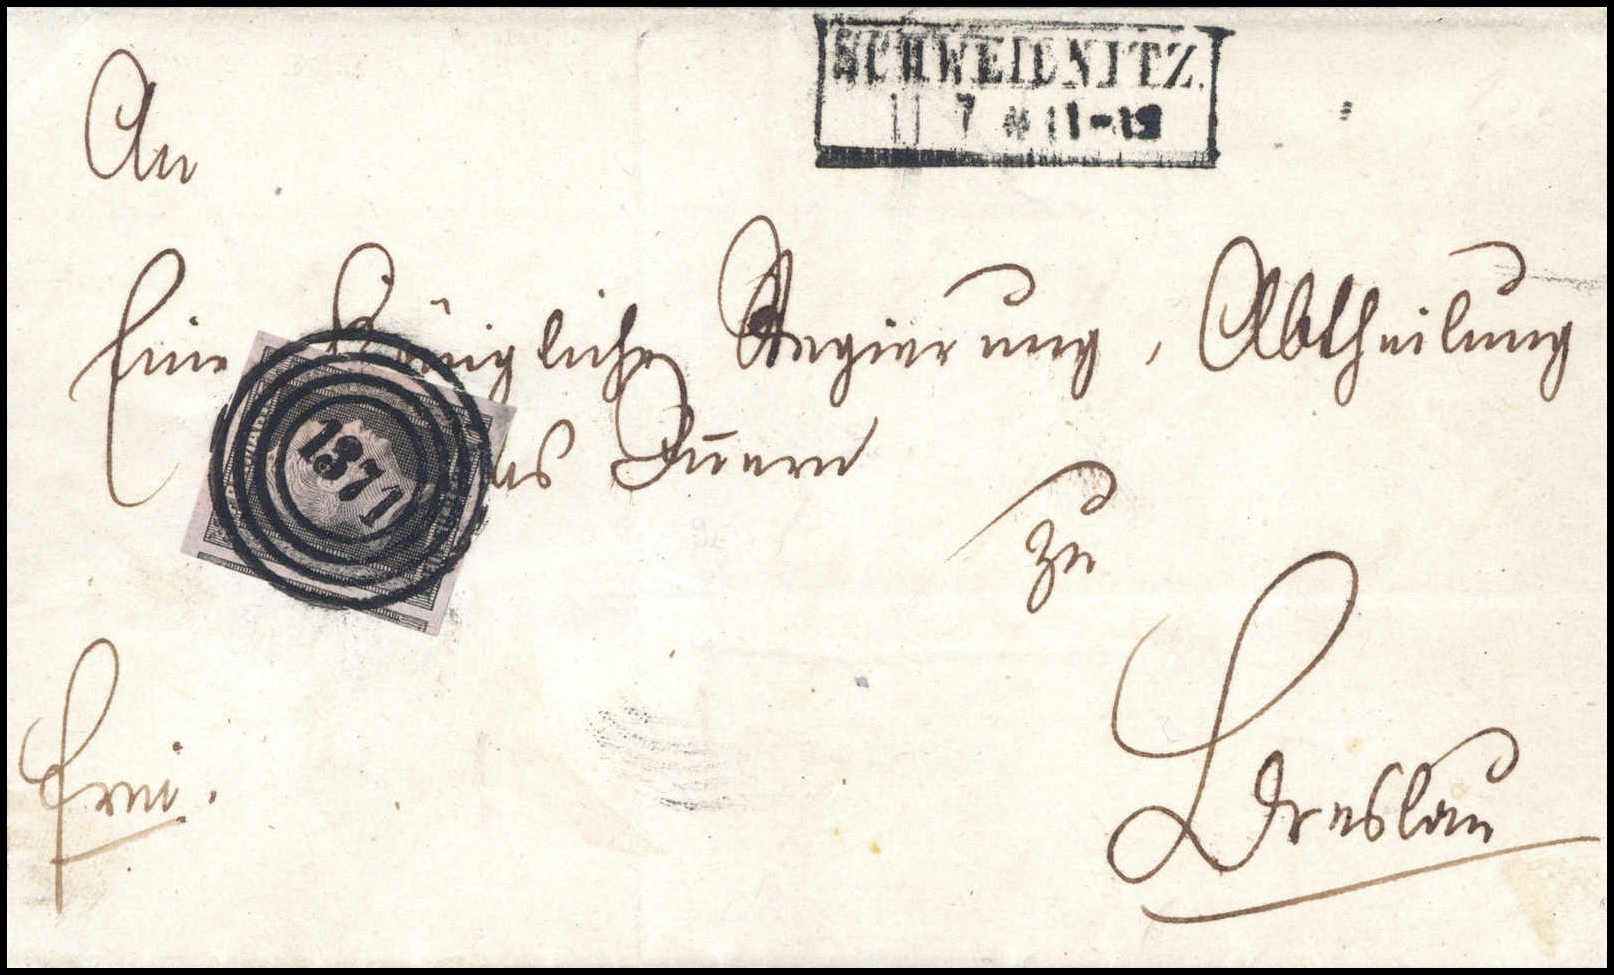 SCHWEIDNITZ.
11 7 * 11-12
An
Eine Königliche Regierung, Abtheilung
des Innern
1371
zu
Breslau
frei.